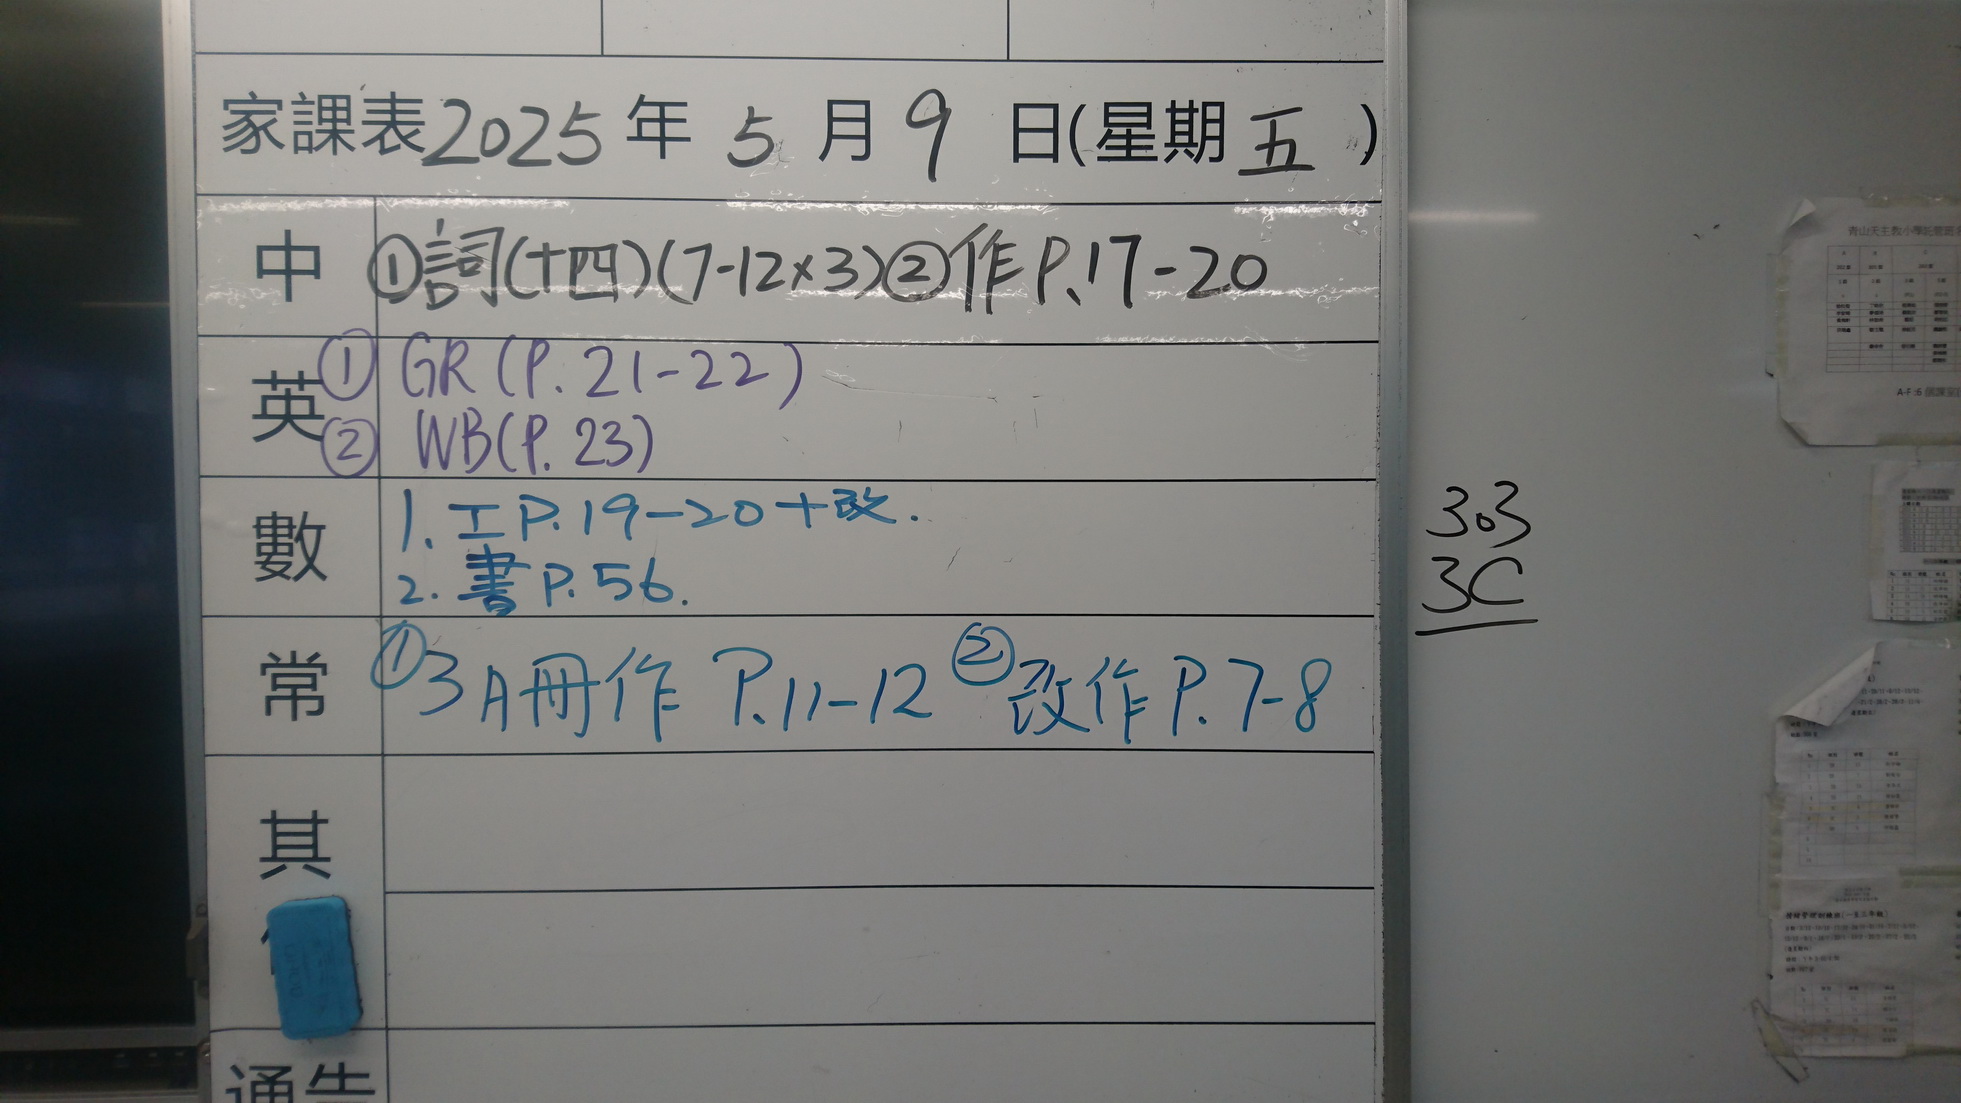 家課表2025年 5 月 9 日(星期 五 )
中 ①詞(十四)(7-12×3)②作P.17-20
英 ① GR (P. 21-22)
② WB(P. 23)
數 1. 工P.19-20+改.
2. 書P.56.
常 ①3A冊作 P.11-12 ②改作P.7-8
其
通告
303
3C
青山天主教小學託管班